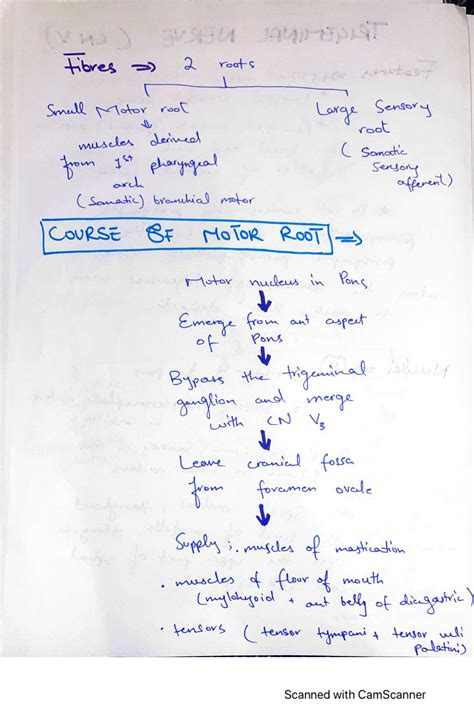 Fibres ⇒ 2 roots
Small Motor root
↓
muscles derived
from 1st pharyngeal
arch
(Somatic) branchial motor
Large Sensory
root
(Somatic
Sensory
afferent)
COURSE OF MOTOR ROOT ⇒
Motor nucleus in Pons
↓
Emerge from ant aspect
of Pons
↓
Bypass the trigeminal
ganglion and merge
with CN V3
↓
Leave cranial fossa
from foramen ovale
↓
Supply :. muscles of mastication
. muscles of floor of mouth
(mylohyoid + ant belly of diagastric)
. tensors (tensor tympani + tensor veli
palatini)
Scanned with CamScanner